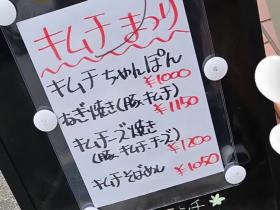 キムチまつり
キムチちゃんぽん
¥1000
ねぎ焼き(豚キムチ)
¥1150
キムチーズ焼き
(豚、キムチ、チーズ)
¥1200
キムチそばめし
¥1050
ンチ